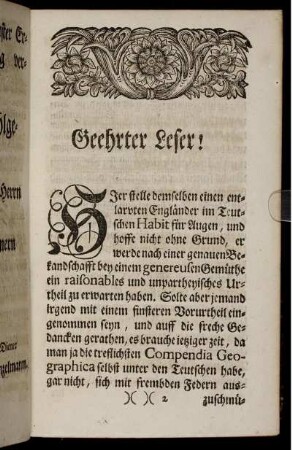 ster Er-
g ver-
olge-
Herrn
nern
Diener
zelmann.
Geehrter Leser!
HIer stelle demselben einen ent-
larvten Engländer im Teut-
schen Habit für Augen, und
hoffe nicht ohne Grund, er
werde nach einer genauen Be-
kandschafft bey einem genereusen Gemüthe
ein raisonables und unpartheyisches Ur-
theil zu erwarten haben. Solte aber jemand
irgend mit einem finsteren Vorurtheil ein-
genommen seyn, und auff die freche Ge-
dancken gerathen, es brauche ietziger zeit, da
man ja die treflichsten Compendia Geo-
graphica selbst unter den Teutschen habe,
gar nicht, sich mit frembden Federn aus-
)( )( 2 zuschmü-